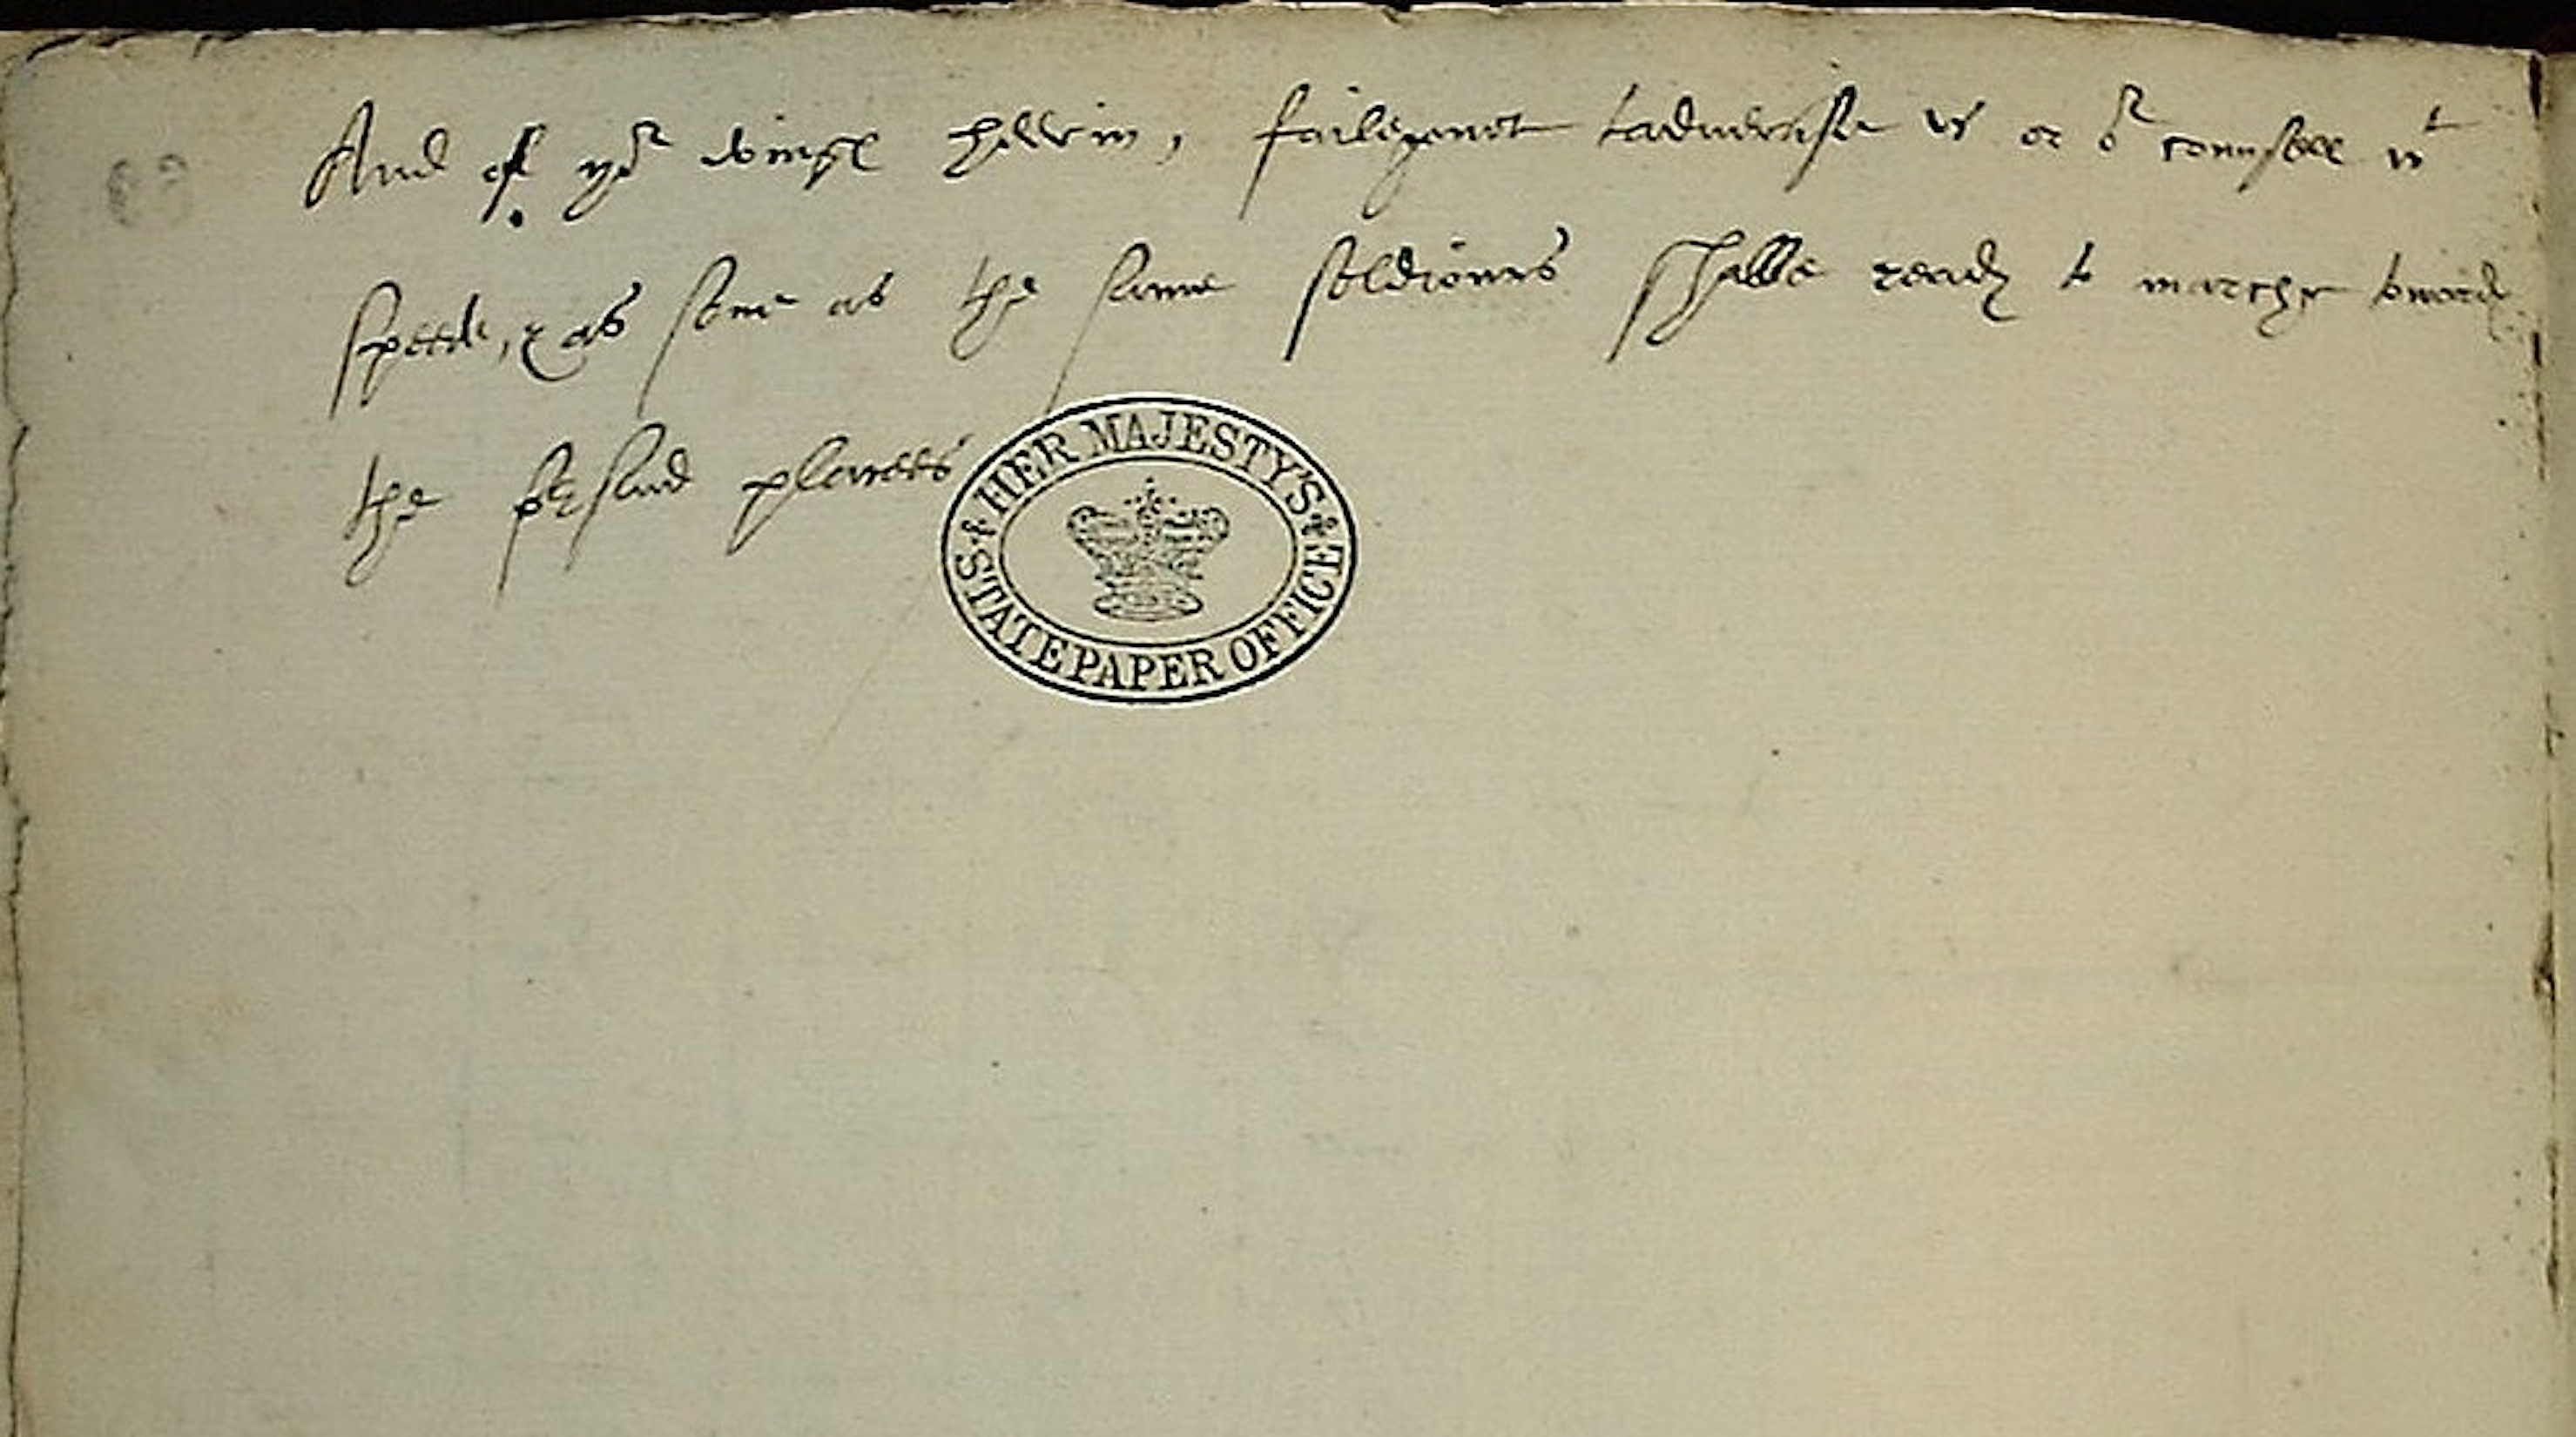 And of yor doings herin, faile ye not tadvertise vs or or counsell wt
spede, & as sone as the same soldiours shalbe ready to marche towards
the forsaid places
HER MAJESTY'S
STATE PAPER OFFICE